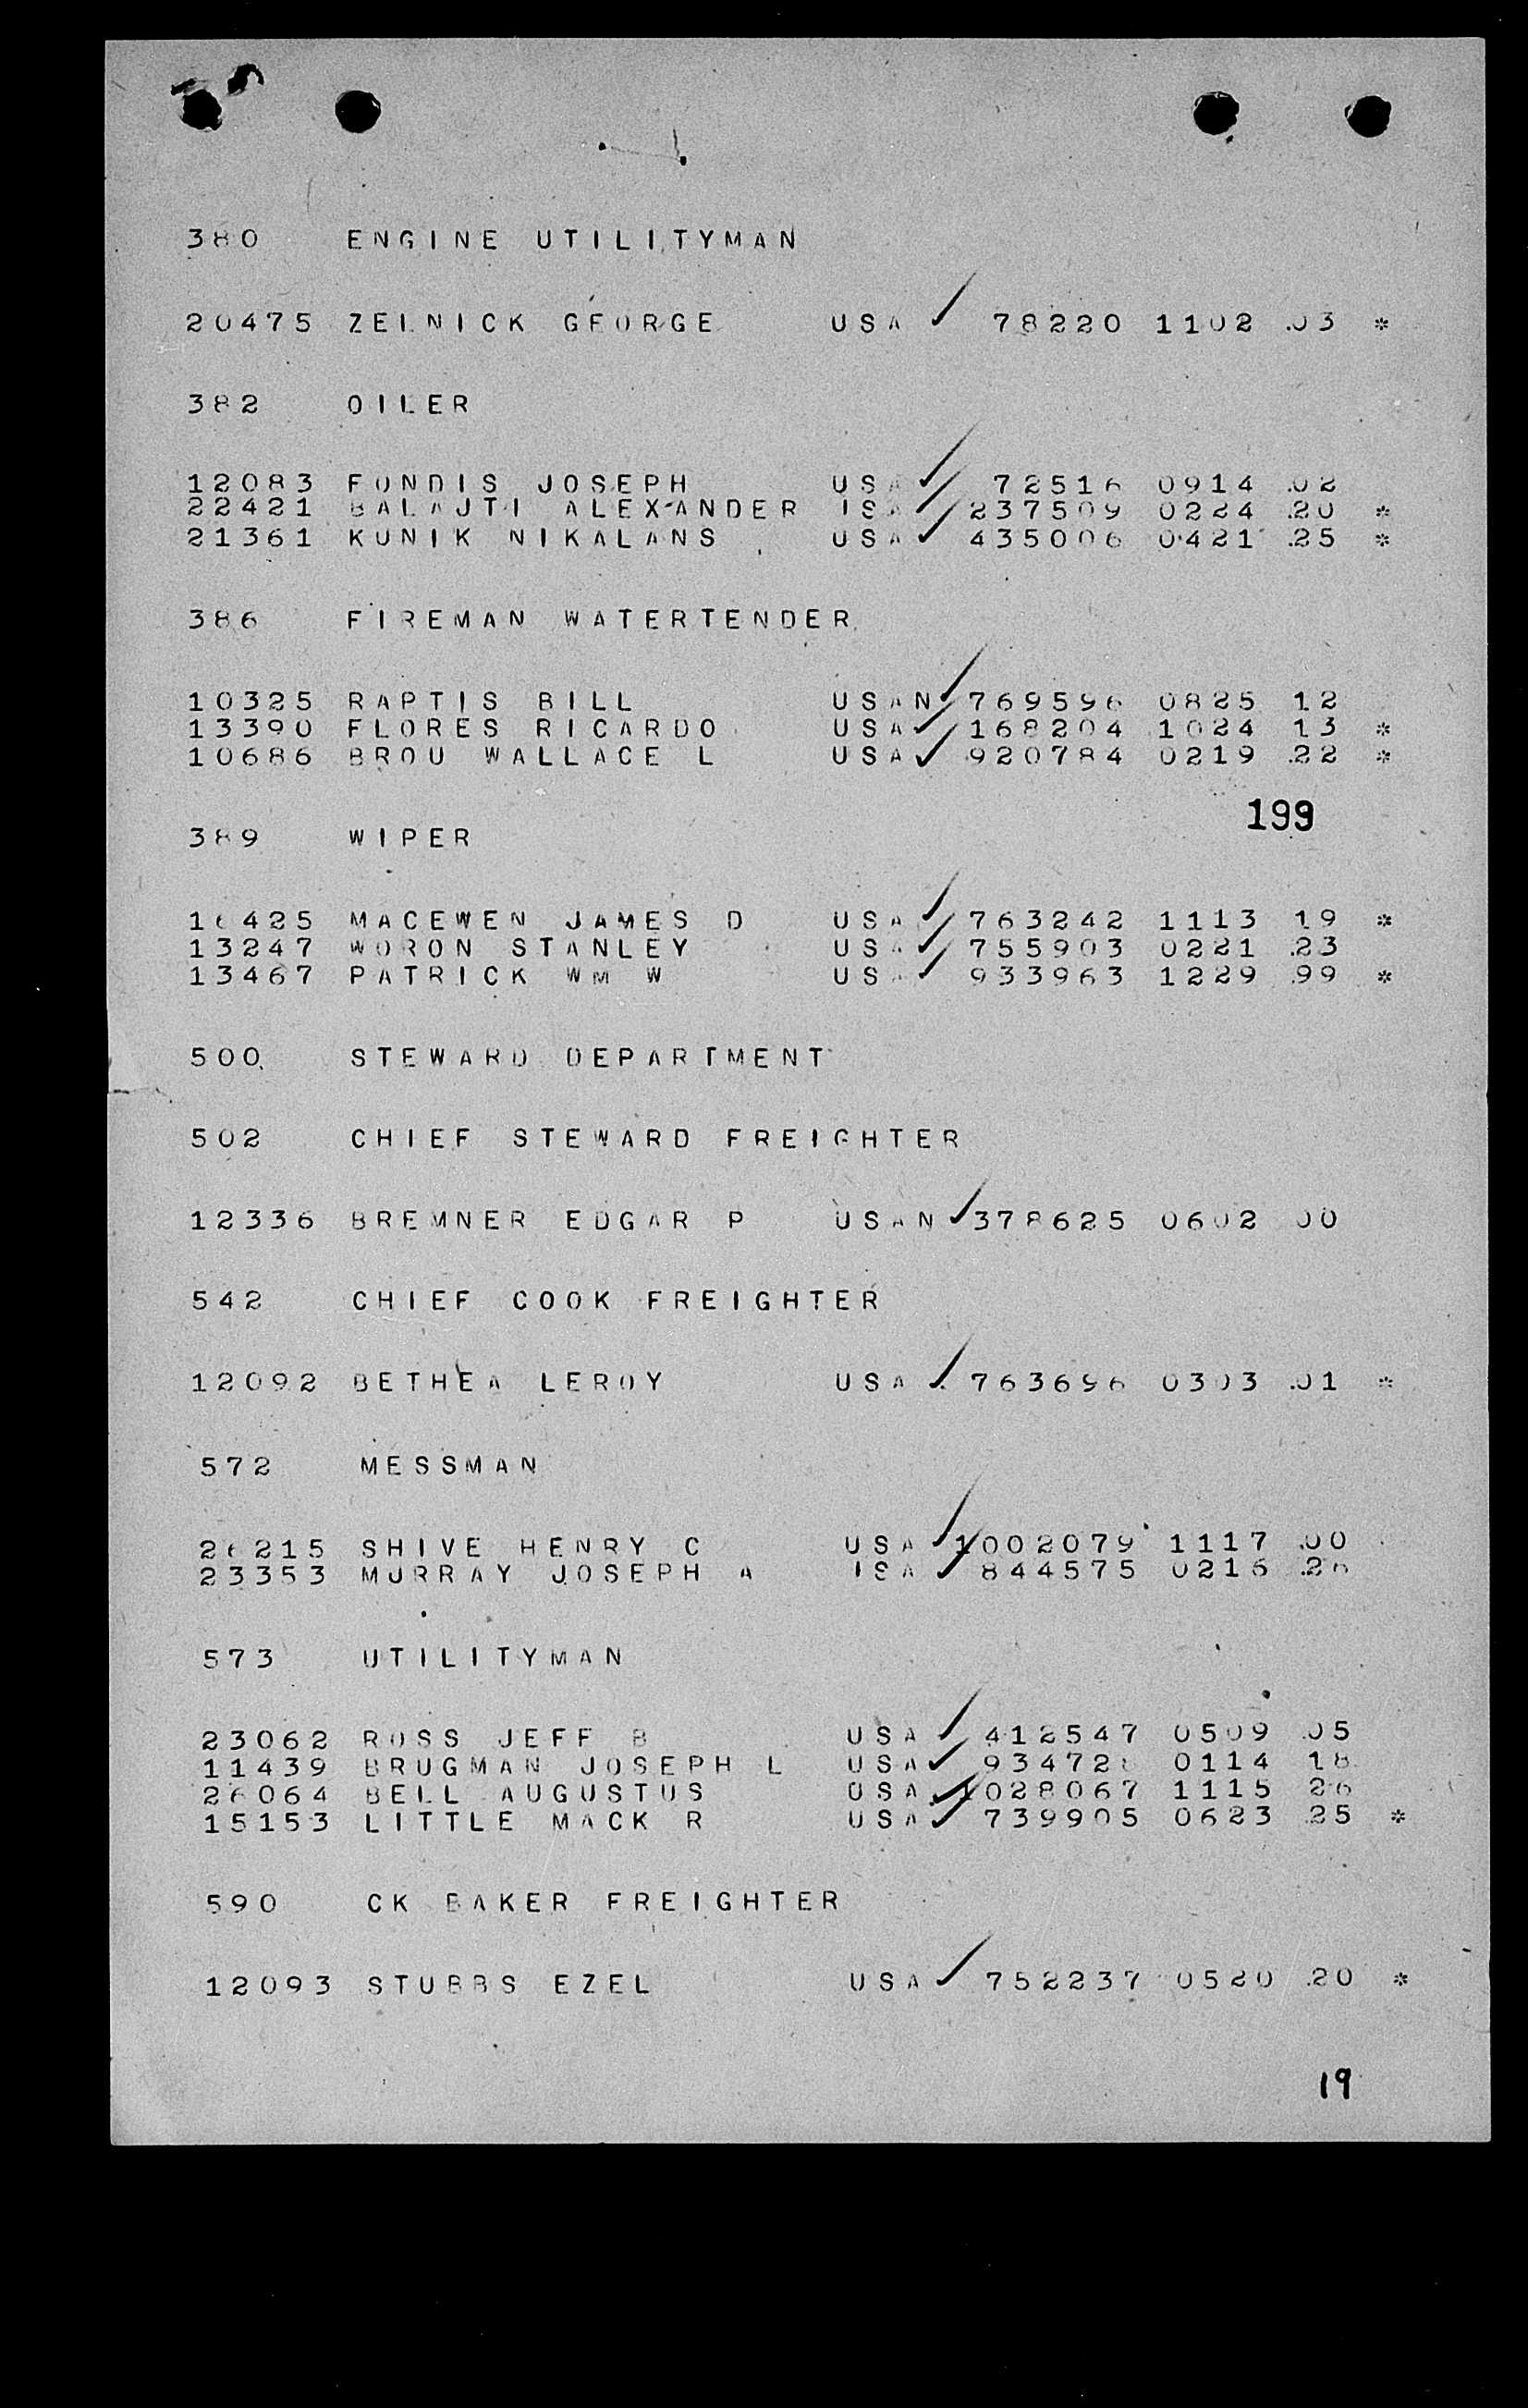 380 ENGINE UTILITYMAN
20475 ZELNICK GEORGE USA ✓ 78220 1102 .03 *
382 OILER
12083 FONDIS JOSEPH USA ✓ 72516 0914 .02
22421 BALAJTI ALEXANDER USA ✓ 237509 0224 .20 *
21361 KUNIK NIKALANS USA ✓ 435006 0421 .25 *
386 FIREMAN WATERTENDER
10325 RAPTIS BILL USAN ✓ 769596 0825 12
13390 FLORES RICARDO USA ✓ 168204 1024 13 *
10686 BROU WALLACE L USA ✓ 920784 0219 .22 *
199
389 WIPER
16425 MACEWEN JAMES D USA ✓ 763242 1113 19 *
13247 WORON STANLEY USA ✓ 755903 0221 .23
13467 PATRICK WM W USA ✓ 933963 1229 .99 *
500 STEWARD DEPARTMENT
502 CHIEF STEWARD FREIGHTER
12336 BREMNER EDGAR P USAN ✓ 378625 0602 00
542 CHIEF COOK FREIGHTER
12092 BETHEA LEROY USA ✓ 763696 0303 .01 *
572 MESSMAN
26215 SHIVE HENRY C USA ✓ 1002079 1117 .00
23353 MURRAY JOSEPH A USA ✓ 844575 0216 .26
573 UTILITYMAN
23062 ROSS JEFF B USA ✓ 412547 0509 .05
11439 BRUGMAN JOSEPH L USA ✓ 0114 18
26064 BELL AUGUSTUS USA ✓ 1028067 1115 26
15153 LITTLE MACK R USA ✓ 739905 0623 .25 *
590 CK BAKER FREIGHTER
12093 STUBBS EZEL USA ✓ 752237 0520 .20 *
19